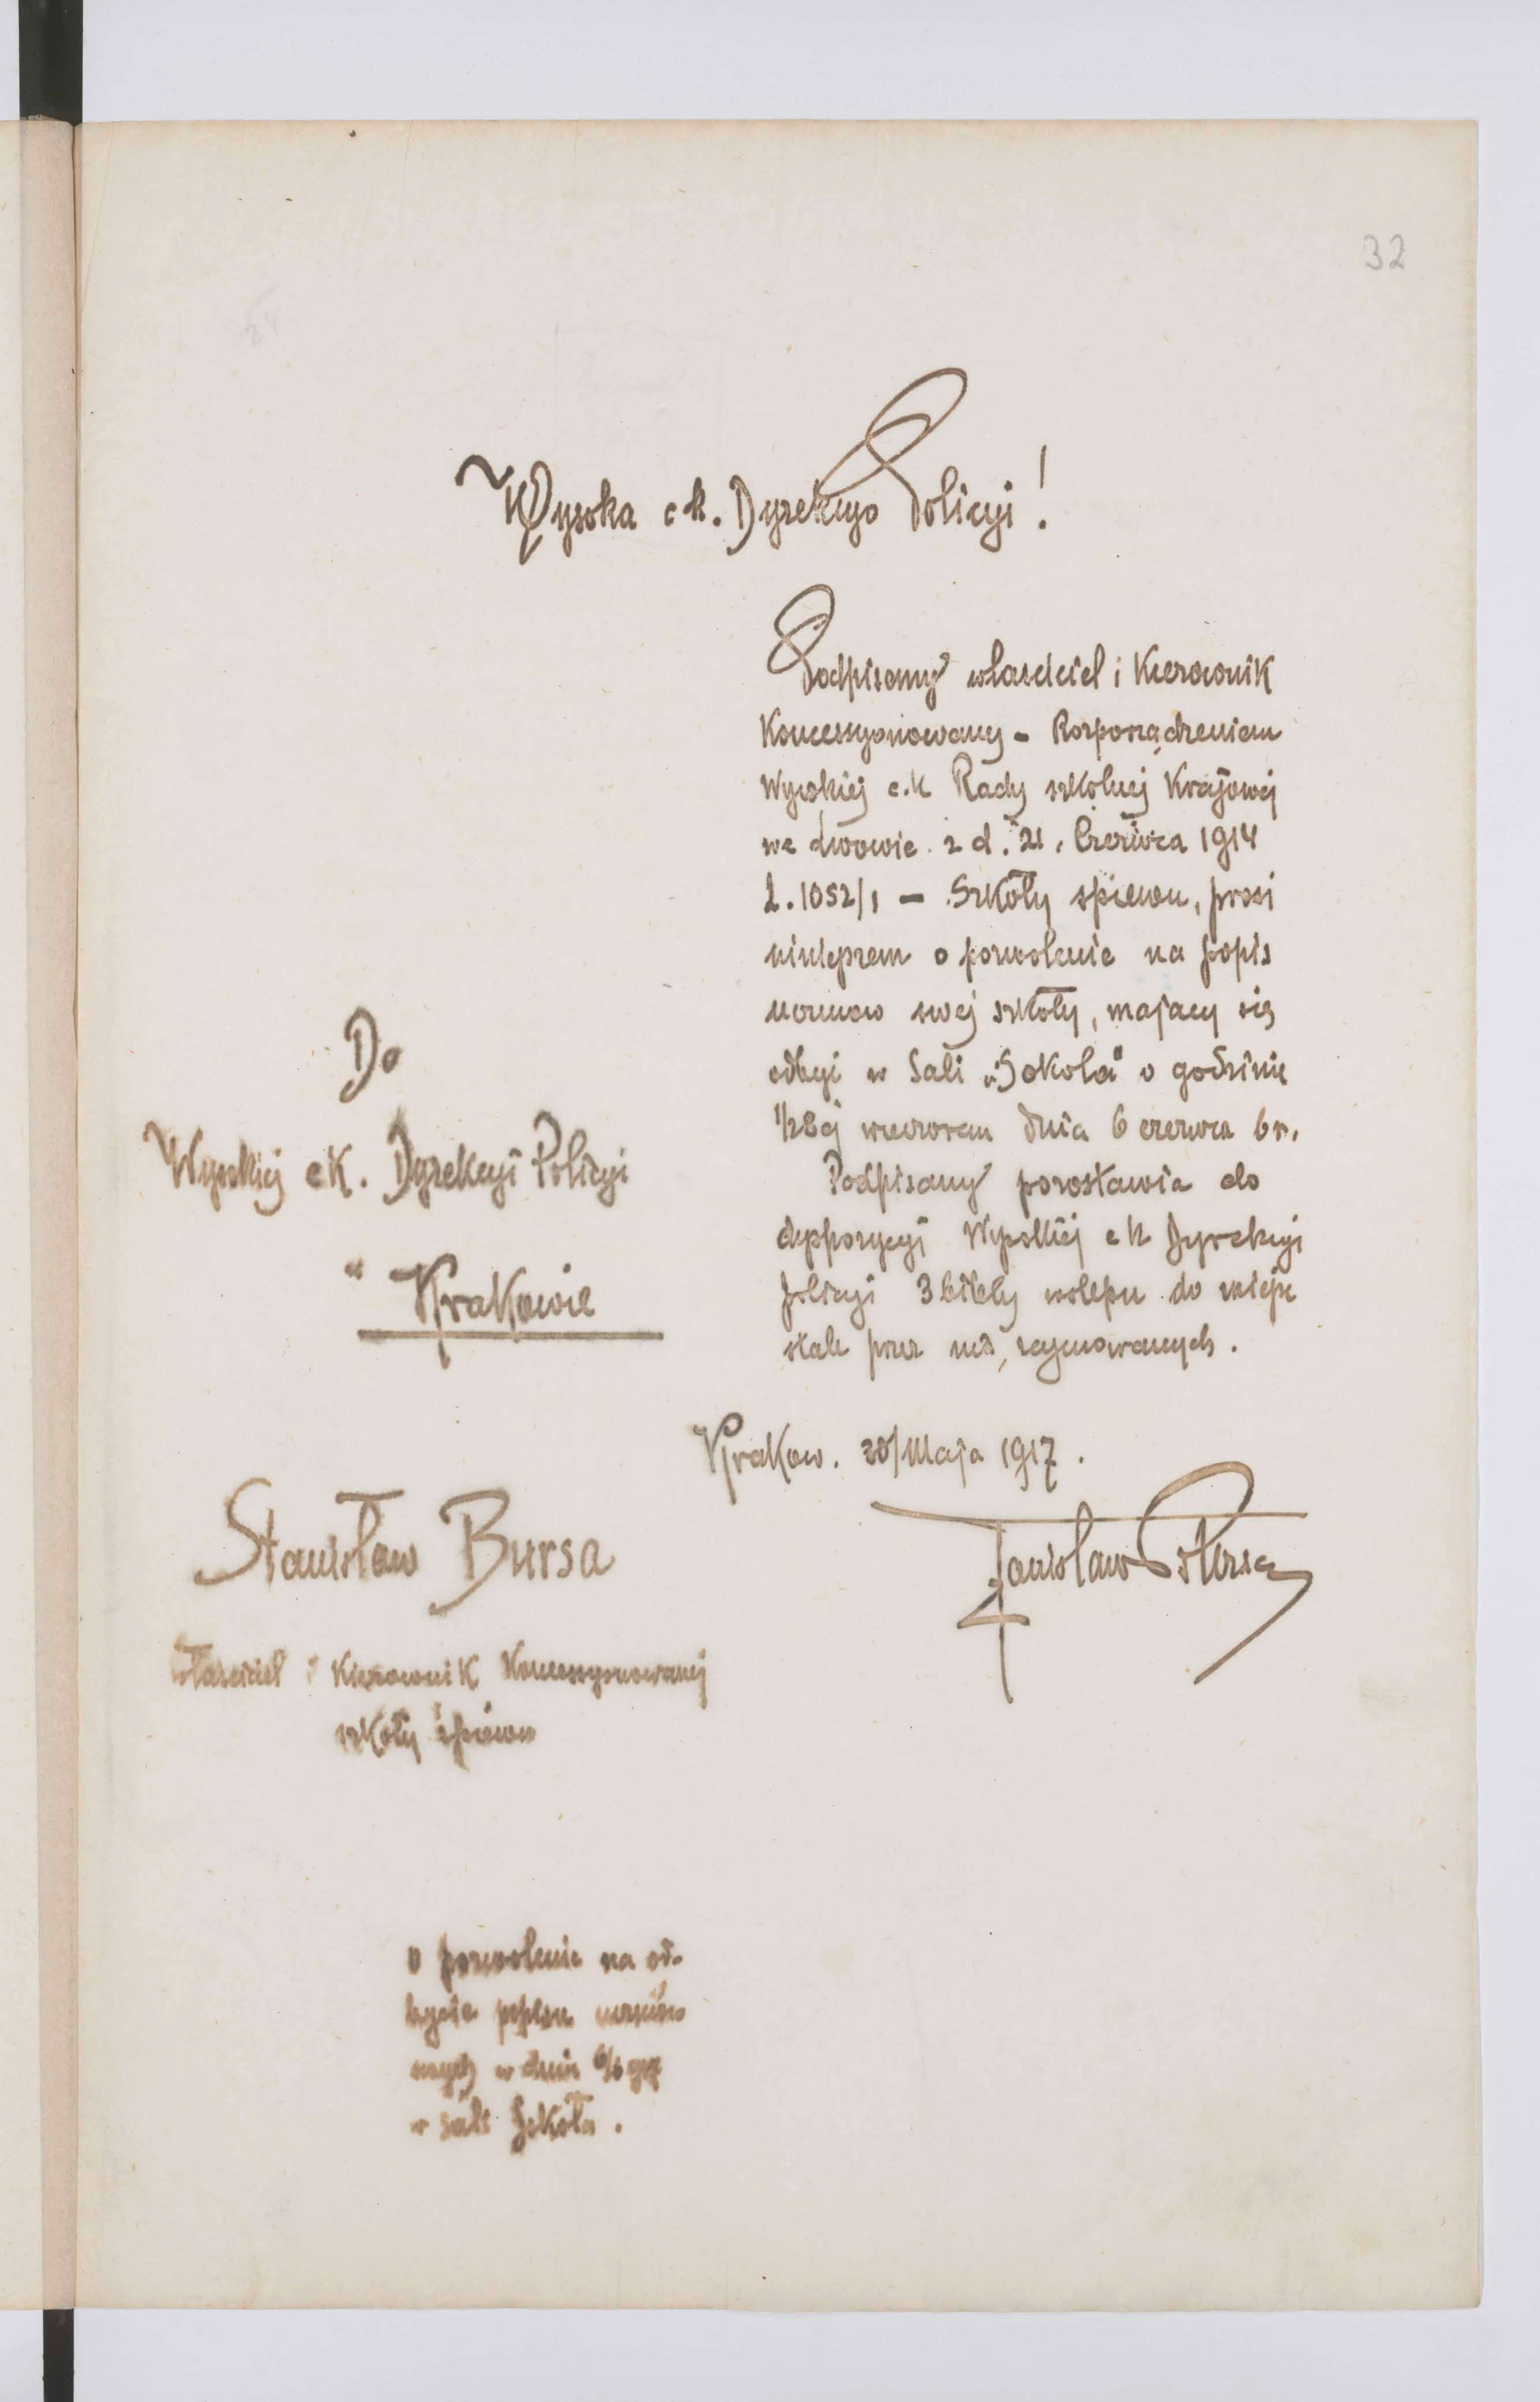 32
Wysoka c k. Dyrekcyo Policyi!
Podpisany właściciel i Kierownik
Koncessyonowany - Rozporządzeniem
Wysokiej c.k Rady szkolnej Krajowej
we Lwowie z d. 21. Czerwca 1914
L. 1052/1 - Szkoły śpiewu, prosi
niniejszem o pozwolenie na popis
uczniów swej szkoły, mający się
odbyć w Sali „Sokoła" o godzinie
1/28ej wieczorem dnia 6 czerwca b r.
Podpisany pozostawia do
dyspozycyi Wysokiej c k Dyrekcyi
policyi 3 bilety wstępu do miejsc
stale przez nią zajmowanych.
Krakow. 30/Maja 1917.
Stanisław Bursa
Do
Wysokiej c K. Dyrekcyi Policyi
w Krakowie
Stanisław Bursa
właściciel i Kierownik Koncessyonowanej
szkoły śpiewu
o pozwolenie na od-
bycie popisu uczniów
w dniu 6/6 917
w sali Sokoła.